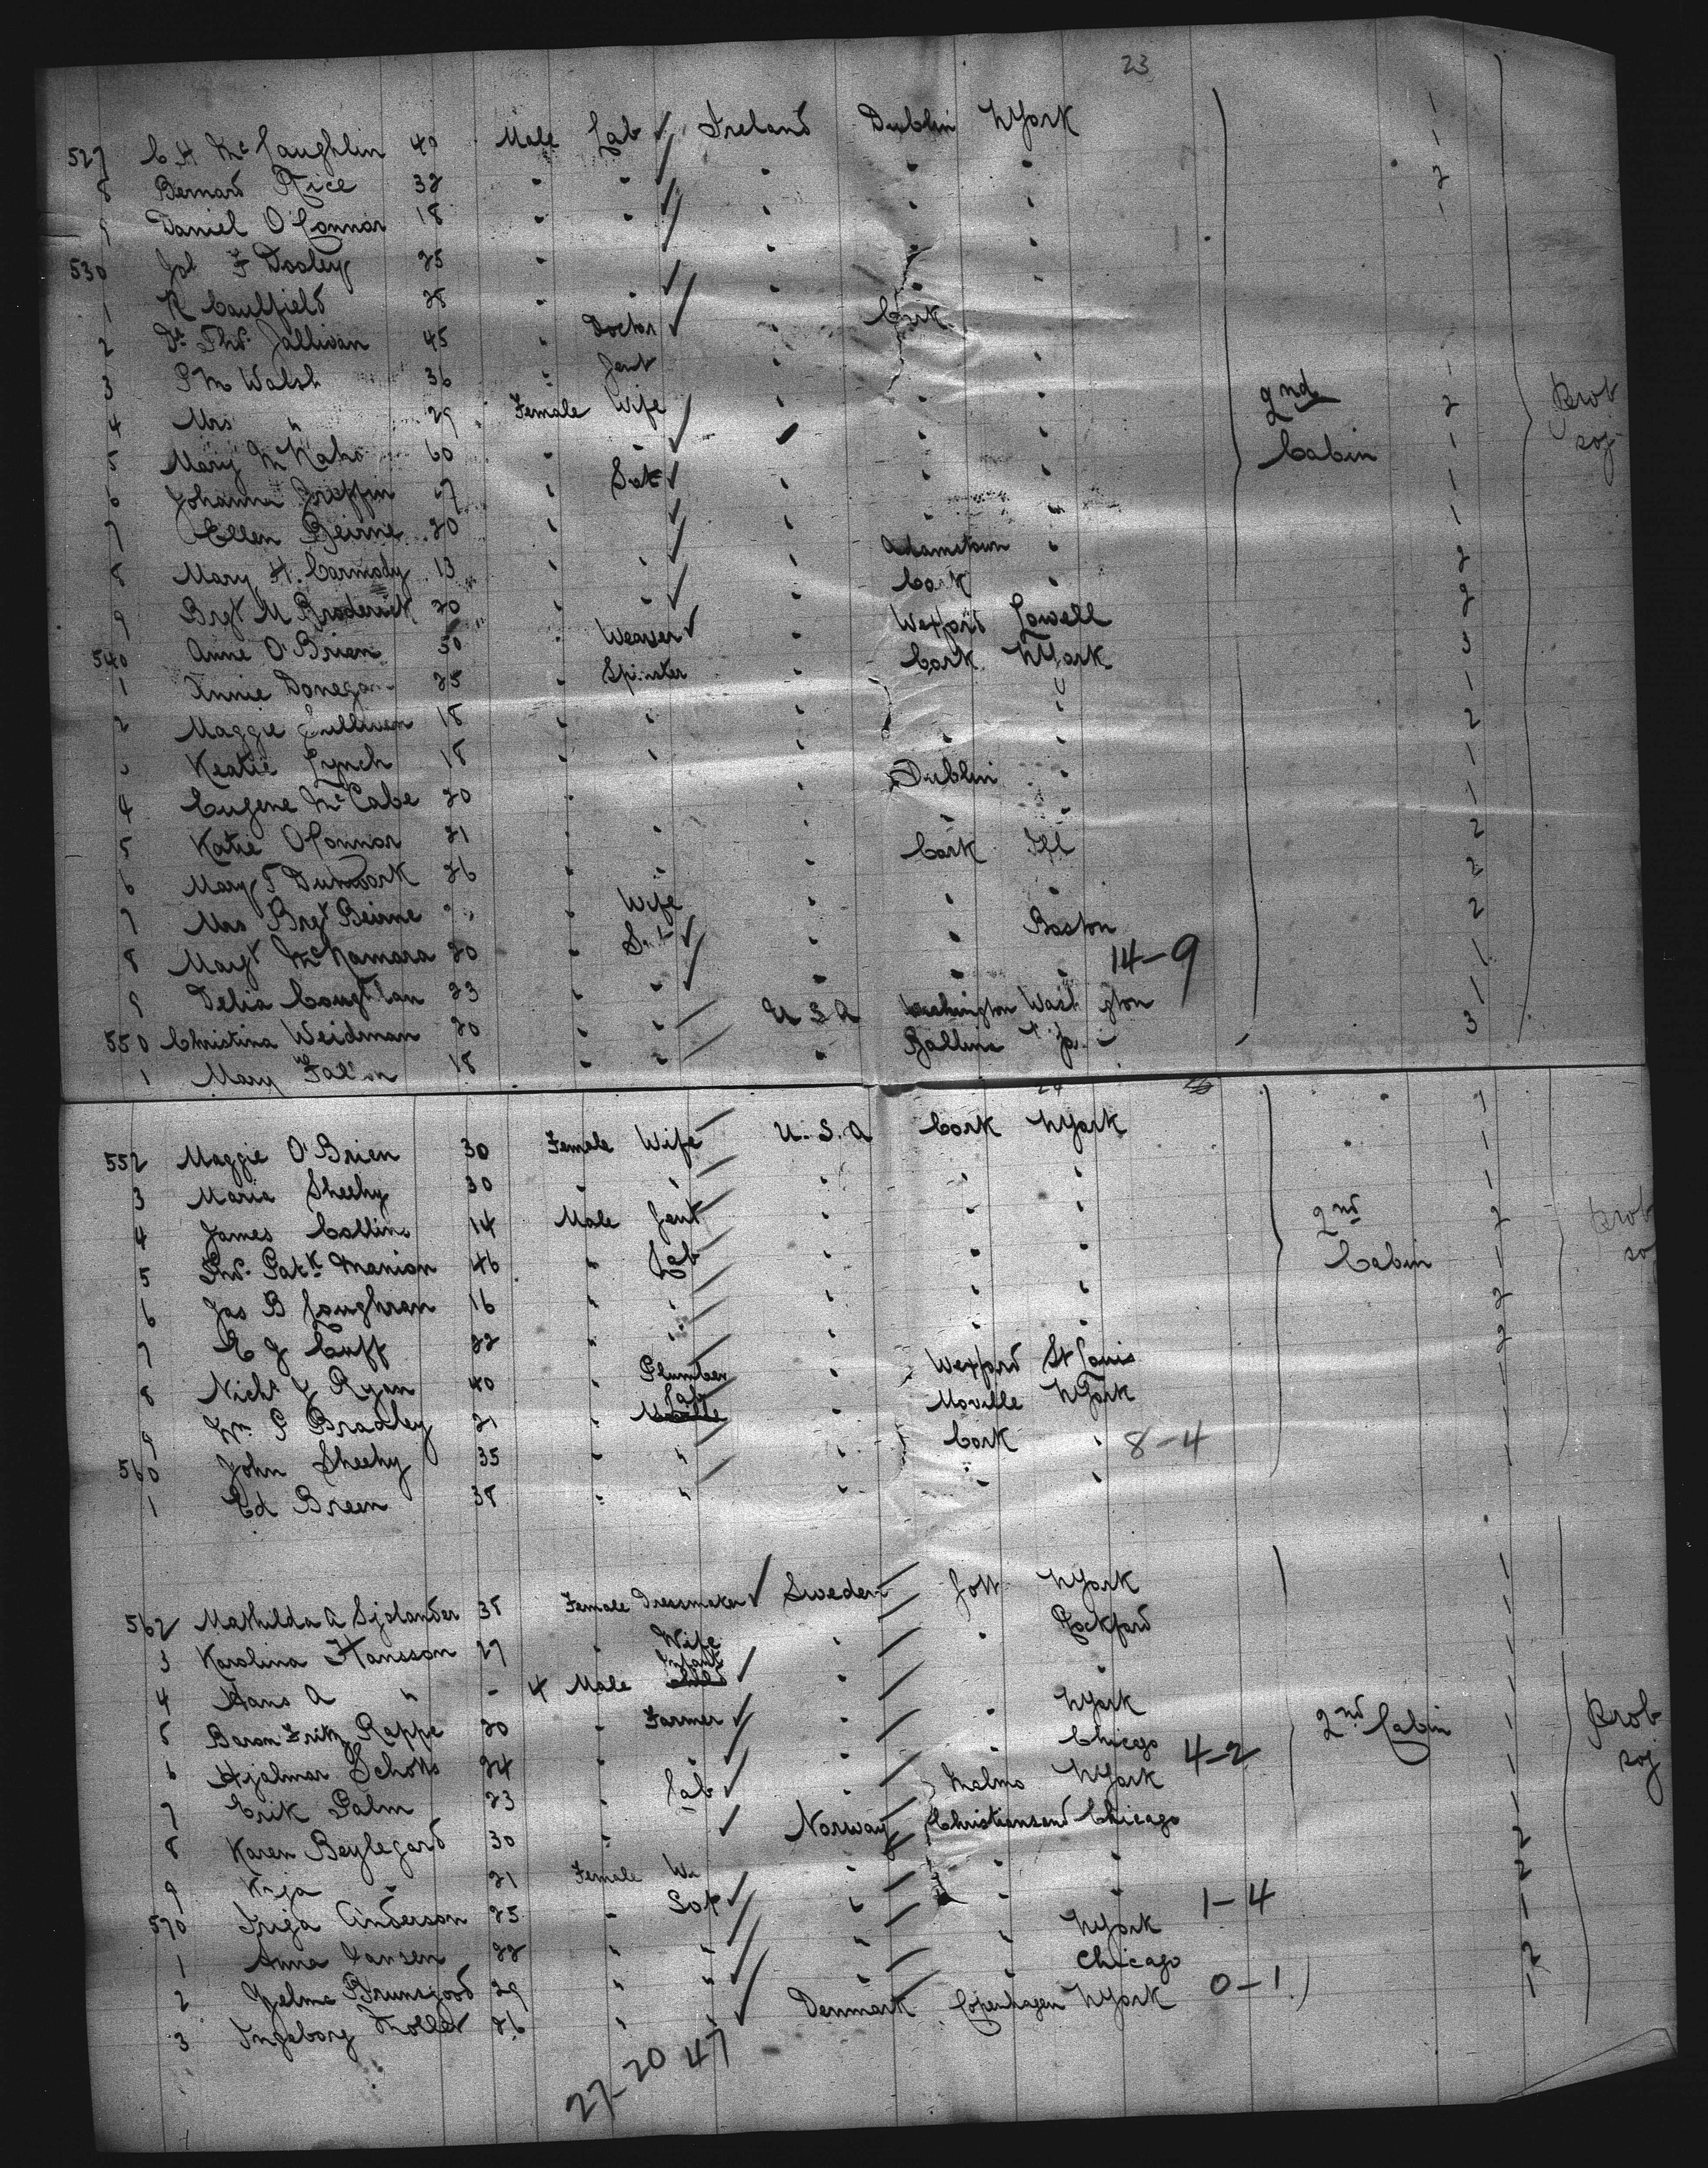 23
527 C H McLaughlin 40 Male Lab Ireland Dublin NYork 1
8 Bernard Rice 32 " " " " " 1
9 Daniel O'Connor 18 " " " " " 2
530 F Dooley 25 " " " " 1
1 Caulfield 28 " " " "
2 Dr Thos. 45 " Doctor " Cork
3 P M Walsh 36 " Gent " " " 1
4 Mrs " 29 Female Wife " " " 2nd 2 Prob
5 Mary 60 " " " " " Cabin 1 soj
6 Johanna Griffin 27 " " " " 1
7 Ellen Beirne 20 " " " " " 1
8 Mary H. Carmody 13 " " " Adamstown " 2
9 Brgt M Broderick 20 " " " Cork " 2
540 Anne O'Brien 50 " Weaver " Wexford Lowell 3
1 Annie Donegan 25 " Spinster " Cork NYork 1
2 Maggie Sullivan 18 " " " " 2
Katie Lynch 18 " " " " " 1
4 Eugene McCabe 20 " " Dublin " 1
5 Katie O'Connor 21 " " " " " 2
6 Mary T 26 " " " Cork Ill 2
7 Mrs Brgt Beirne " Wife " " " 2
8 Margt McNamara 20 " " " Boston 1
9 Delia Coughlan 23 " " " " " 14-9 1
550 Christina Weidman 20 " " U S A Washington Washington 3
1 Mary 18 " " " Ballina
24
552 Maggie O'Brien 30 Female Wife U.S.A Cork NYork 1
3 Maria Sheehy 30 " " " " " 1
4 James Collins 14 Male Gent " " " 2nd 1
5 Thos. Patk Manion 46 " Lab " " " Cabin 2
6 Jas B Loughran 16 " " " " " 1
7 E J Cuff 22 " " " " " 2
8 Nichs Y Ryan 40 " Plumber " Wexford St Louis 2
9 Wm P Bradley 21 " Lab " Moville NYork 1
560 John Sheehy 35 " " " Cork " 8-4 1
1 Ed Breen 38 " " " " " 1
562 Mathilda A Sjolander 38 Female Dressmaker Sweden Gott NYork 1
3 Karolina Hansson 27 " Wife " " Rockford 1
4 Hans A " - 4 Male Infant " " 1
5 Baron Fritz Rappe 20 " Farmer " " NYork 2nd Cabin 1 Prob
6 Hjalmar 24 " " " " Chicago 4-2 1 soj
7 Erik Palm 23 " Lab " Malmo NYork 1
8 Karen Beylegard 30 " Norway Christiansand Chicago 1
9 " 21 Female " " " 2
570 Anderson 25 " " " " 1-4 2
1 Anna Jansen 22 " " " " NYork 1
2 29 " " " " Chicago 2
3 Ingeborg 26 " " Denmark Copenhagen NYork 0-1 1
27-20 47